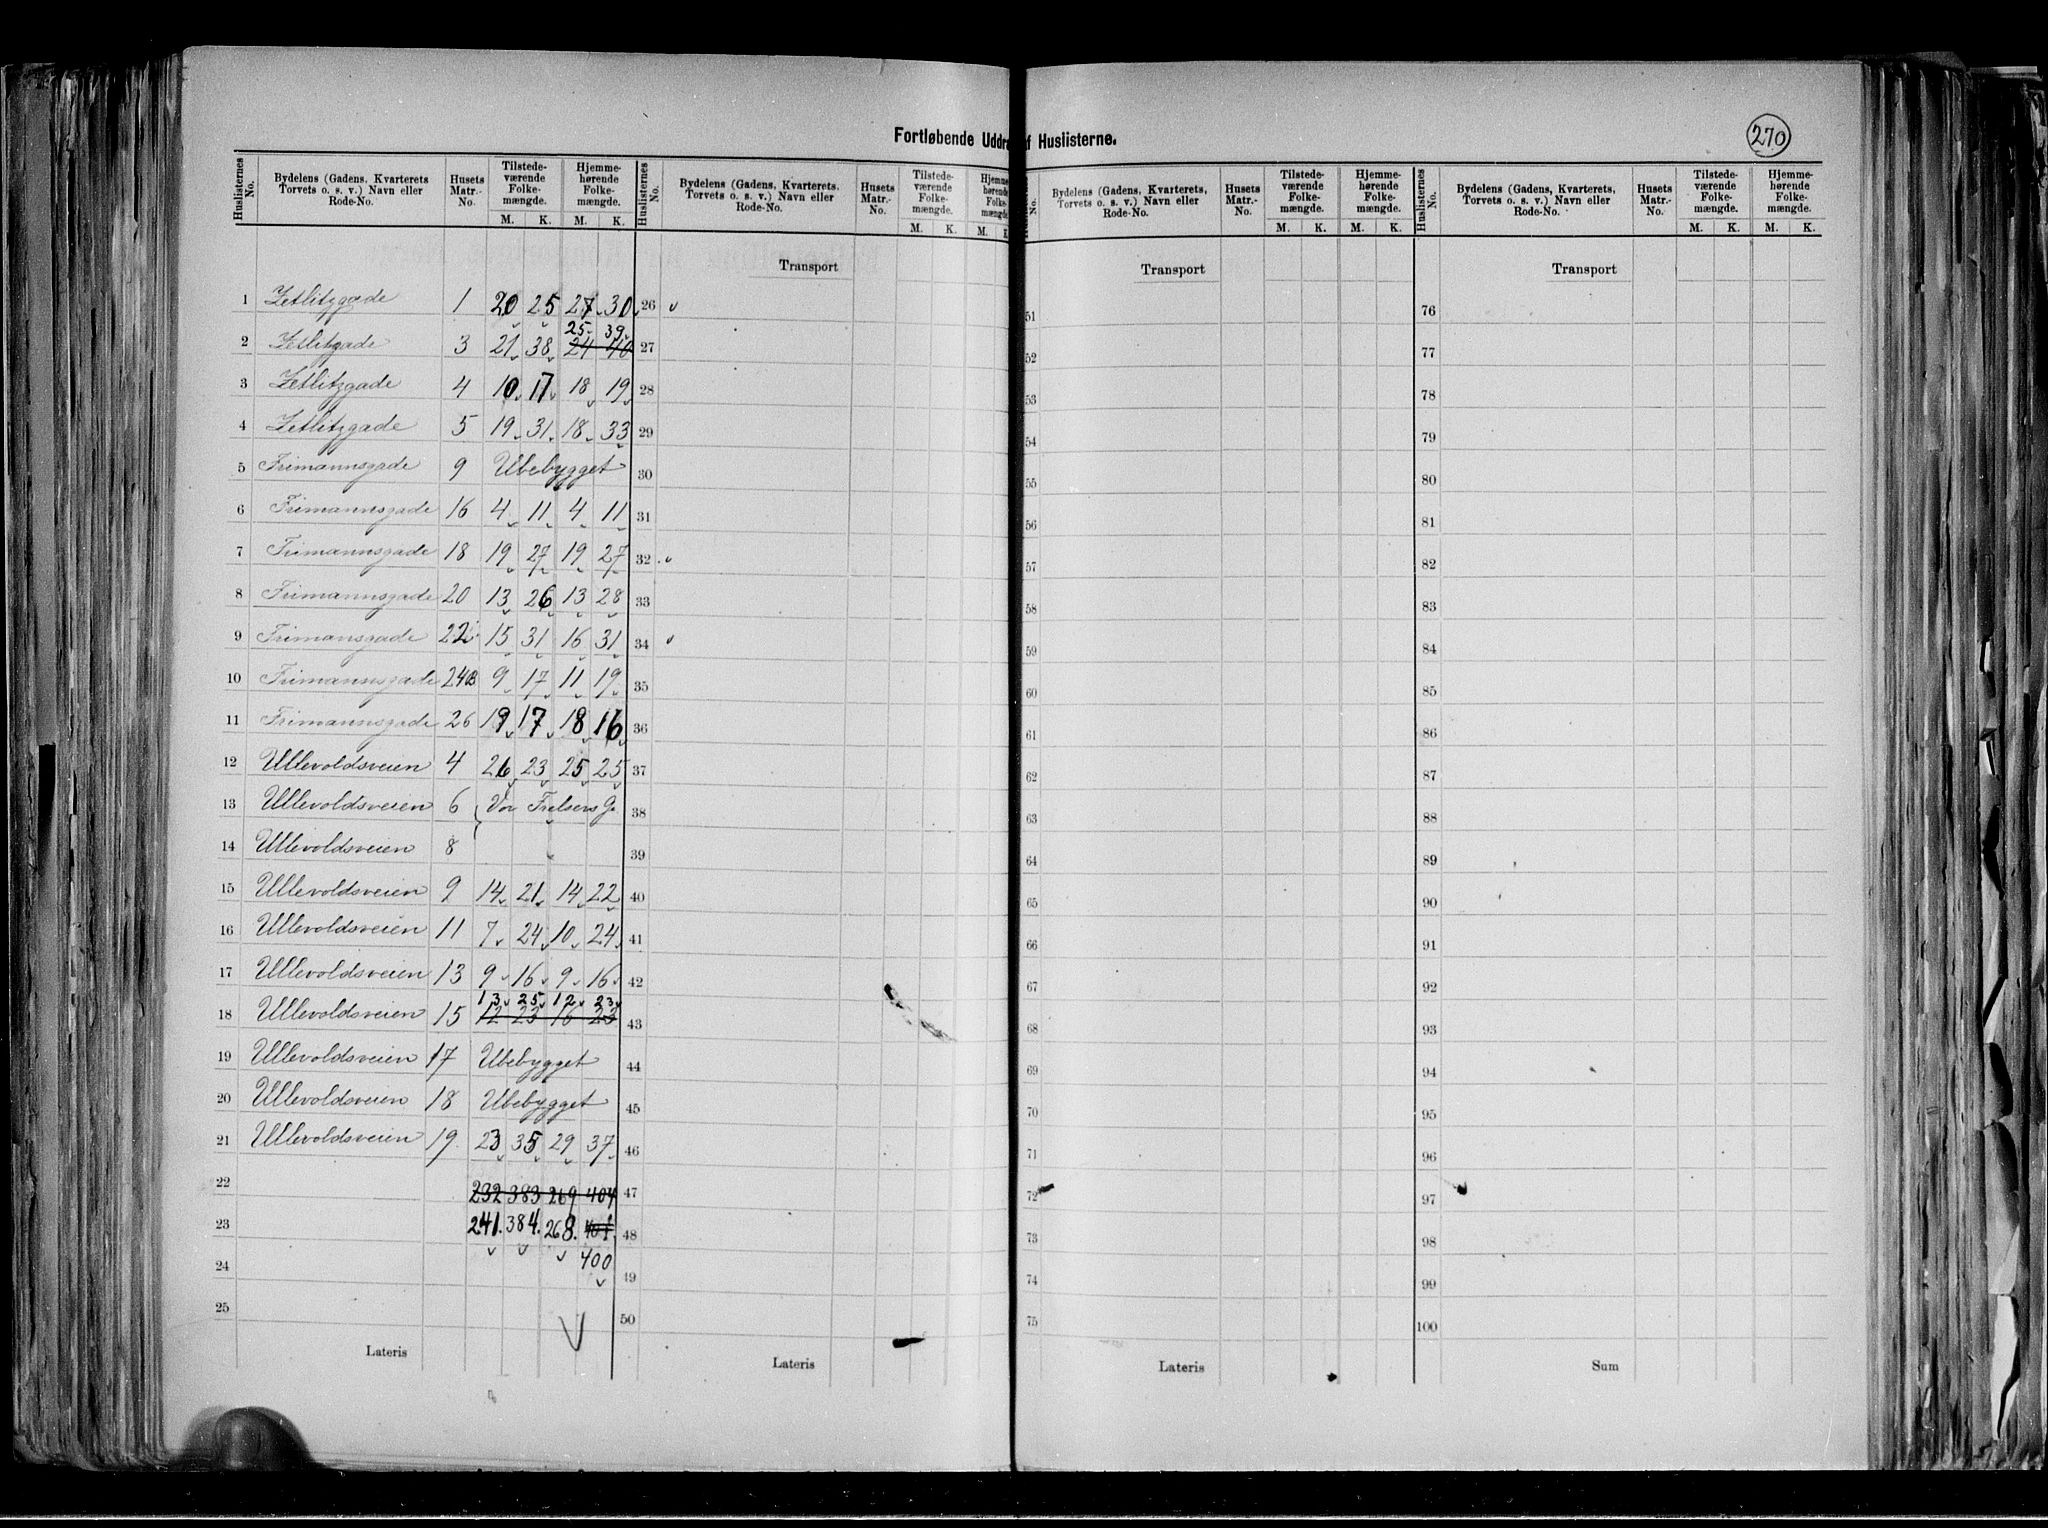 Fortløbende Uddr
f Huslisterne.
270
Huslisternes No.
Bydelens (Gadens, Kvarterets, Torvets o. s. v.) Navn eller Rode-No.
Husets Matr.-No.
Tilstede-værende Folke-mængde.
Hjemme-hørende Folke-mængde.
M. K. M. K.
1 Zetlitzgade 1 20 25 27 30
25 39
2 Zetlitzgade 3 21 38 24 40
3 Zetlitzgade 4 10 17 18 19
4 Zetlitzgade 5 19 31 18 33
5 Frimannsgade 9 Ubebygget
6 Frimannsgade 16 4 11 4 11
7 Frimannsgade 18 19 27 19 27
8 Frimannsgade 20 13 26 13 28
9 Frimansgade 22 15 31 16 31
10 Frimannsgade 24B 9 17 11 19
11 Frimannsgade 26 19 17 18 16
12 Ullevoldsveien 4 26 23 25 25
13 Ullevoldsveien 6 Vor Frelsers G.
14 Ullevoldsveien 8
15 Ullevoldsveien 9 14 21 14 22
16 Ullevoldsveien 11 7 24 10 24
17 Ullevoldsveien 13 9 16 9 16
13 25 12 23
18 Ullevoldsveien 15 12 23 16 23
19 Ullevoldsveien 17 Ubebygget
20 Ullevoldsveien 18 Ubebygget
21 Ullevoldsveien 19 23 35 29 37
22 232 383 269 404
23 241. 384. 268. 401.
400
24
25
Lateris
Huslisternes No.
Bydelens (Gadens, Kvarterets, Torvets o. s. v.) Navn eller Rode-No.
Husets Matr.-No.
Tilstede-værende Folke-mængde.
Hjemme-hørende Folke-mængde.
M. K. M.
Transport
26
27
28
29
30
31
32
33
34
35
36
37
38
39
40
41
42
43
44
45
46
47
48
49
50
Lateris
No.
Bydelens (Gadens, Kvarterets, Torvets o. s. v.) Navn eller Rode-No.
Husets Matr.-No.
Tilstede-værende Folke-mængde.
Hjemme-hørende Folke-mængde.
M. K. M. K.
Transport
51
52
53
54
55
56
57
58
59
60
61
62
63
64
65
66
67
68
69
70
71
72
73
74
75
Lateris
Huslisternes No.
Bydelens (Gadens, Kvarterets, Torvets o. s. v.) Navn eller Rode-No.
Husets Matr.-No.
Tilstede-værende Folke-mængde.
Hjemme-hørende Folke-mængde.
M. K. M. K.
Transport
76
77
78
79
80
81
82
83
84
85
86
87
88
89
90
91
92
93
94
95
96
97
98
99
100
Sum